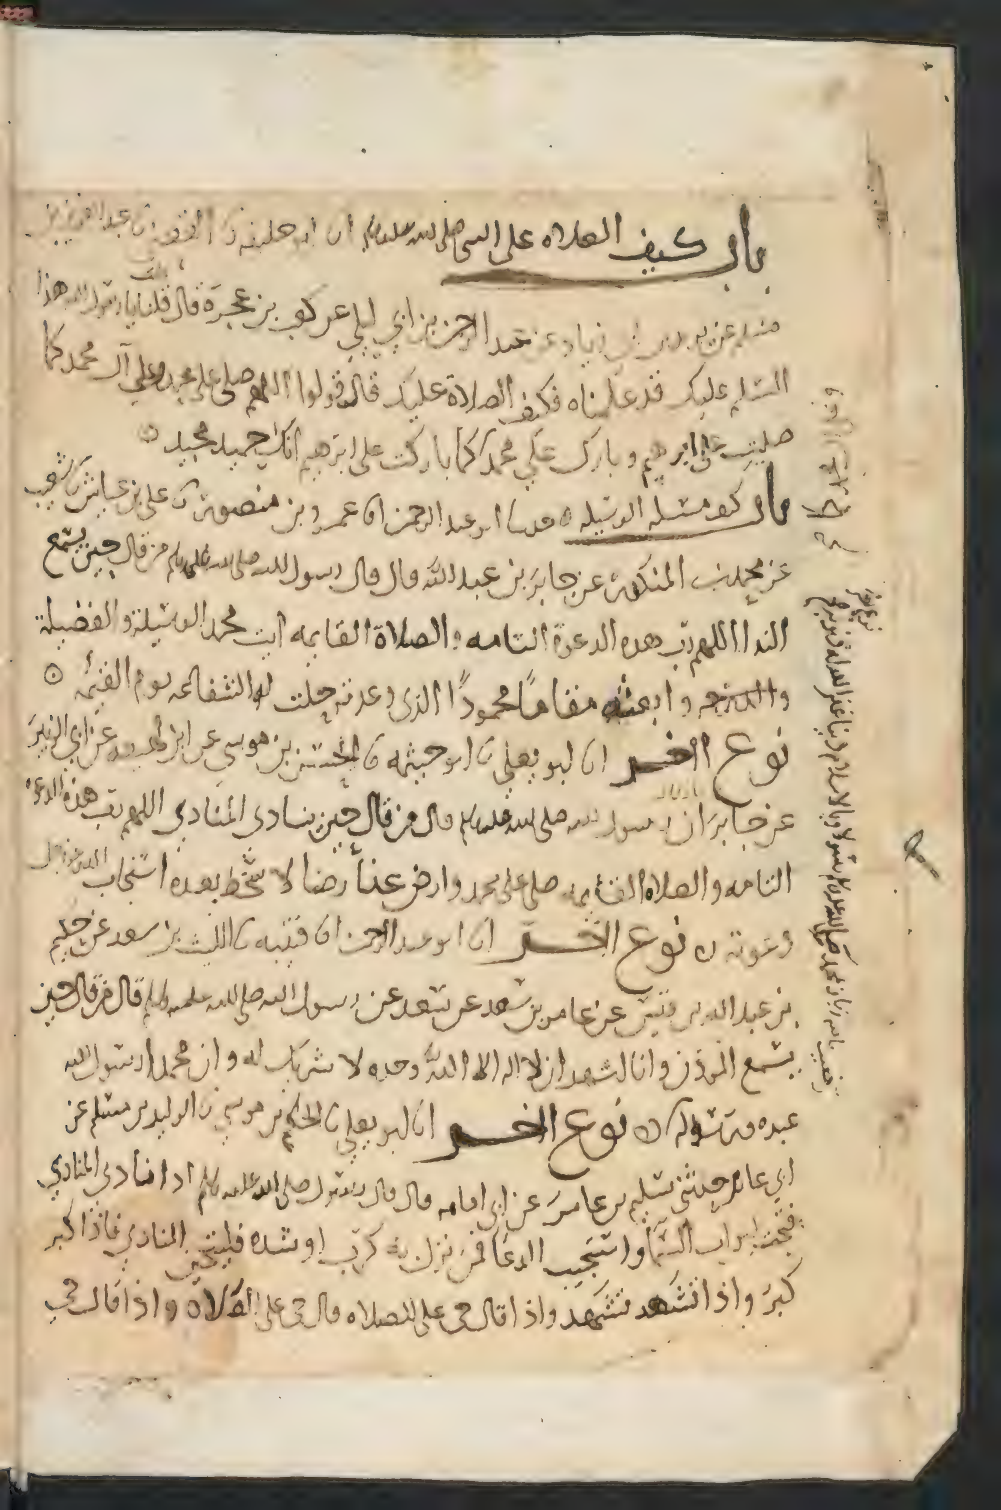 باب كيف الصلاة على النبي صلى الله عليه وسلم انا ابو خليفه نا القعنبي نا عبد العزيز بن
مسلم عن يزيد بن ابي زياد عن عبد الرحمن بن ابي ليلى عن كعب بن عجرة قال قلنا يا رسول الله هذا
السلم عليك قد علمناه فكيف الصلاة عليك قال قولوا اللهم صلي على محمد وعلى آل محمد كما
صليت على ابرهيم وبارك على محمد كما باركت على ابرهيم انك حميد مجيد
باب كيف مسئلة الوسيله ابو عبد الرحمن انا عمرو بن منصور نا علي بن عياش نا شعيب
عن محمد بن المنكدر عن جابر بن عبد الله قال قال رسول الله صلى الله عليه وسلم من قال حين يسمع
الندا اللهم رب هذه الدعوة التامه والصلاة القايمه ايت محمد الوسيلة والفضيلة
وابعثه مقامًا محمودًا الذي وعدته حلت له الشفاعه يوم القيمه
نوع اخر انا ابو يعلى نا ابو خيثمه نا الحسن بن موسى عن ابن لهيعه عن ابي الزبير
عن جابر ان رسول الله صلى الله عليه وسلم قال من قال حين ينادي المنادي اللهم رب هذه الدعوة
التامه والصلاة القايمه صلي على محمد وارض عنا رضا لا سخط بعده استجاب الله
دعوته نوع اخر انا ابو عبد الرحمن انا قتيبه نا الليث بن سعد عن حكيم
بن عبد الله بن قيس عن عامر بن سعد عن سعد عن رسول الله صلى الله عليه وسلم قال من قال حين
يسمع المؤذن وانا اشهد ان لا اله الا الله وحده لا شريك له وان محمدا رسول الله
عبده ورسوله نوع اخر انا ابو يعلى نا الحكم بن موسى نا الوليد بن مسلم عن
ابي عائذ حدثني سليم بن عامر عن ابي امامه قال قال رسول الله صلى الله عليه وسلم اذا نادي المنادي
فتحت ابواب السما واستجيب الدعا فمن نزل به كرب او شده فليتحين المنادي فاذا كبر
كبر واذا تشهد تشهد واذا قال حي على الصلاه قال حي على الصلاه واذا قال حي